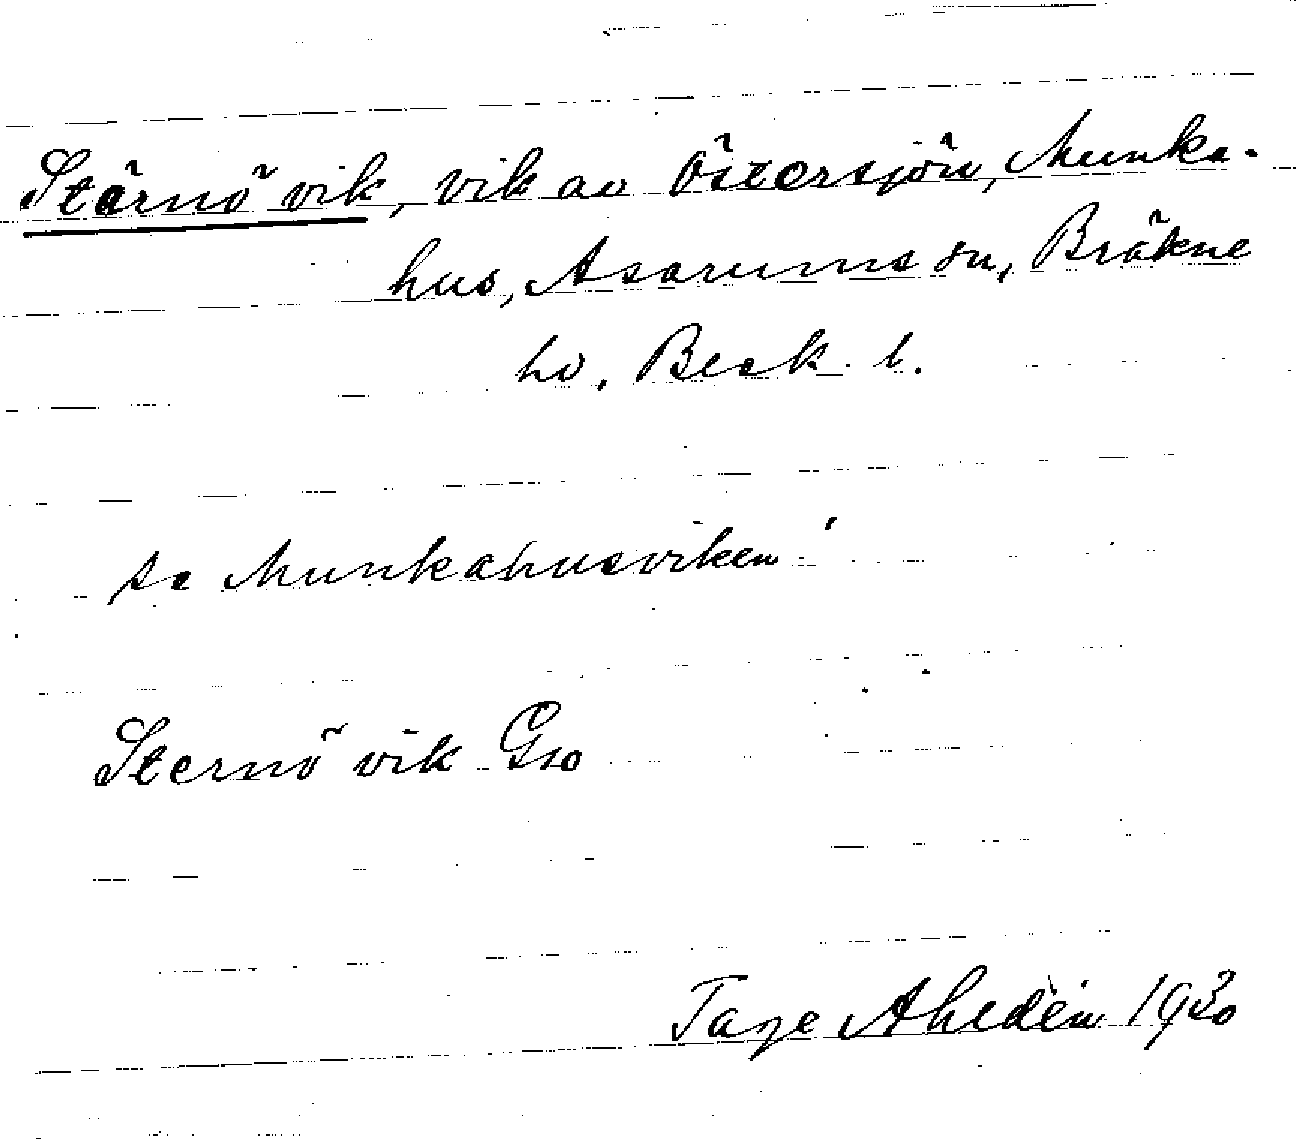 Stärnö vik, vik av Östersjön, Munka-
hus, Asarums sn, Bräkne
hd. Blek. l.
se Munkahusviken!
Sternö vik Gso
Tage Ahldén 1930